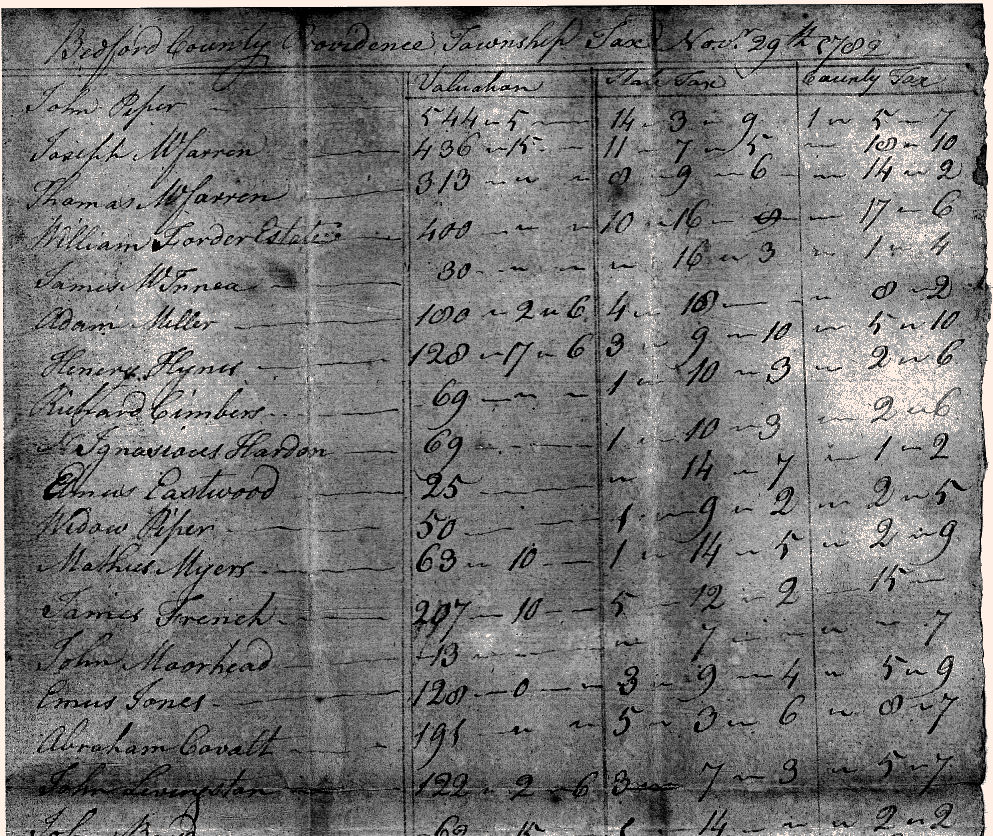 Bedford County Providence Township Tax Novr 29th 1782
Valuation State Tax County Tax
John Piper 544 " 5 14 " 3 " 9 1 " 5 " 7
Joseph McFarren 436 " 15 11 " 7 " 5 " 18 " 10
Thomas McFarren 313 " " 8 " 9 " 6 " 14 " 2
William Forder Estate 400 " " 10 " 16 " 17 " 6
James 30 " " " 16 " 3 " 1 " 4
Adam Miller 180 " 2 " 6 4 " 18 " 8 " 2
Henery Hynes 128 " 17 " 6 3 " 9 " 10 " 5 " 10
Richard Cimbers 69 " " 1 " 10 " 3 " 2 " 6
Ignasious Hardon 69 1 " 10 " 3 " 2 " 6
Eastwood 25 " 14 " 7 " 1 " 2
Widow Piper 50 1 " 9 " 2 " 2 " 5
Mathias Myers 63 " 10 1 " 14 " 5 " 2 " 9
James French 207 " 10 5 " 12 " 2 " 15
John Moorhead 13 " 7 " " 7
Emus Jones 128 " 0 3 " 9 " 4 " 5 " 9
Abraham Covalt 191 " " 5 " 3 " 6 " 8 " 7
John Livingston 122 " 2 " 6 3 " 7 " 3 " 5 " 7
John 62 15 1 " 14 2 " 2